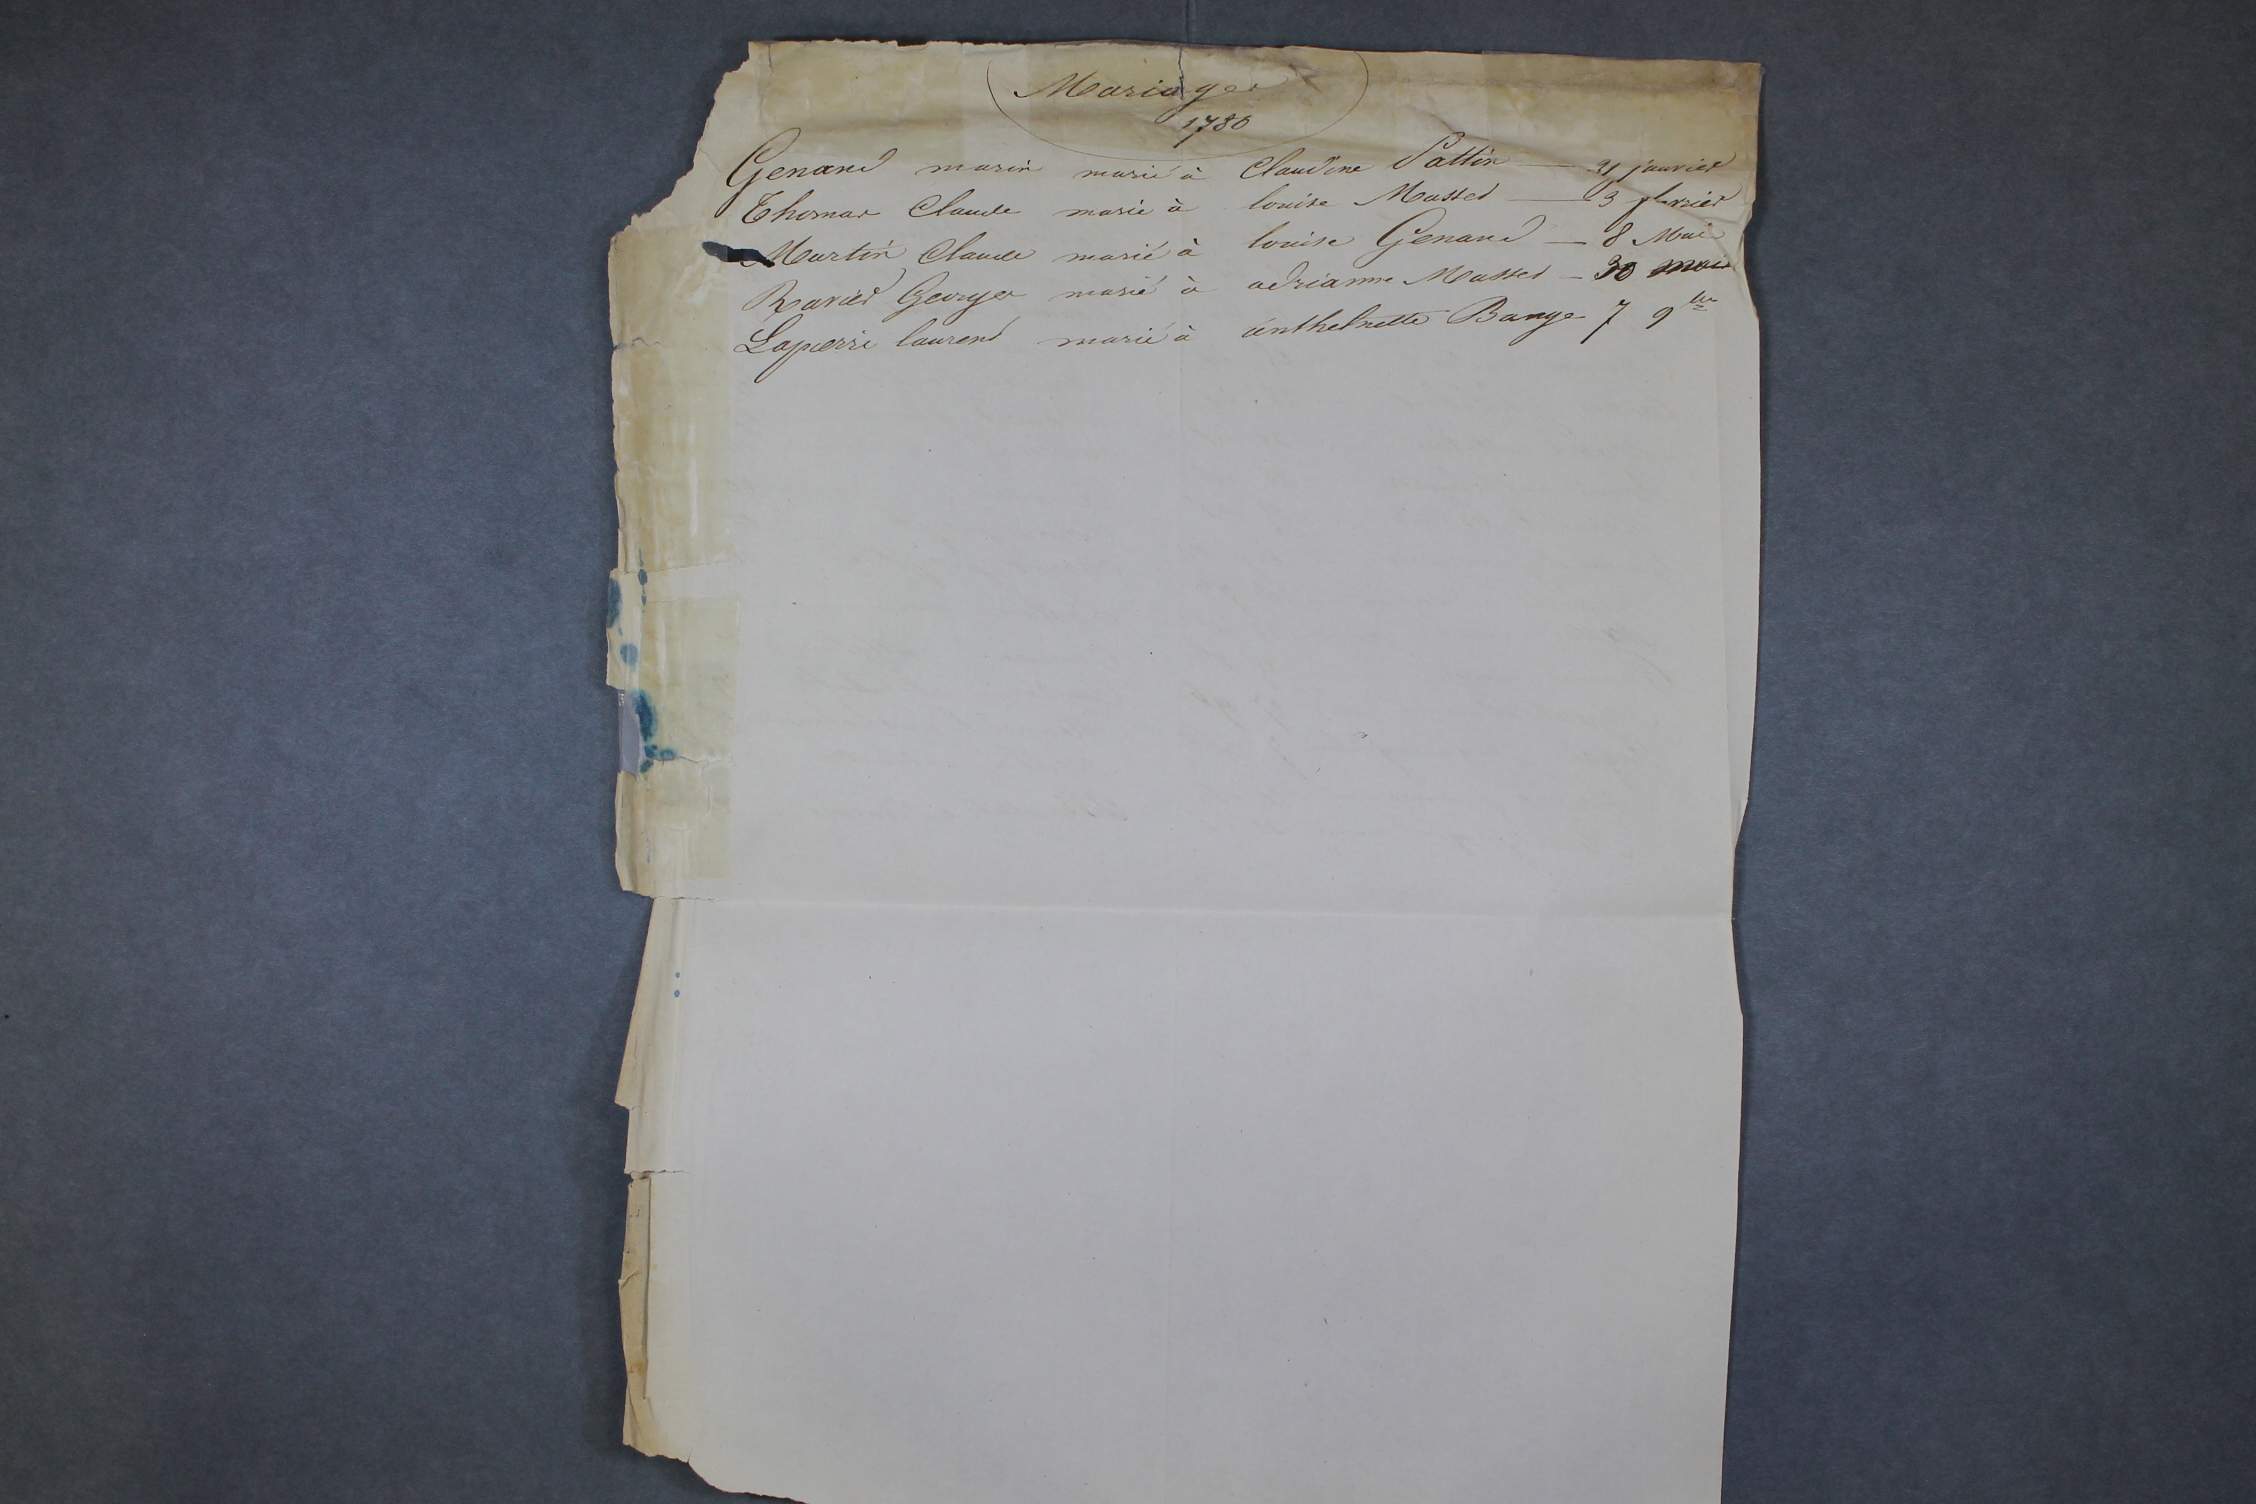 Mariages
1780
Genand marin marié à Claudine Pattin — 31 janvier
Thomas Claude marié à louise Masset — 3 fevrier
Martin Claude marié à louise Genand — 8 Mai
Ravier Georges marié à adrianne Masset — 30 mai
Lapierre laurent marié à anthelmette Bange 7 9bre